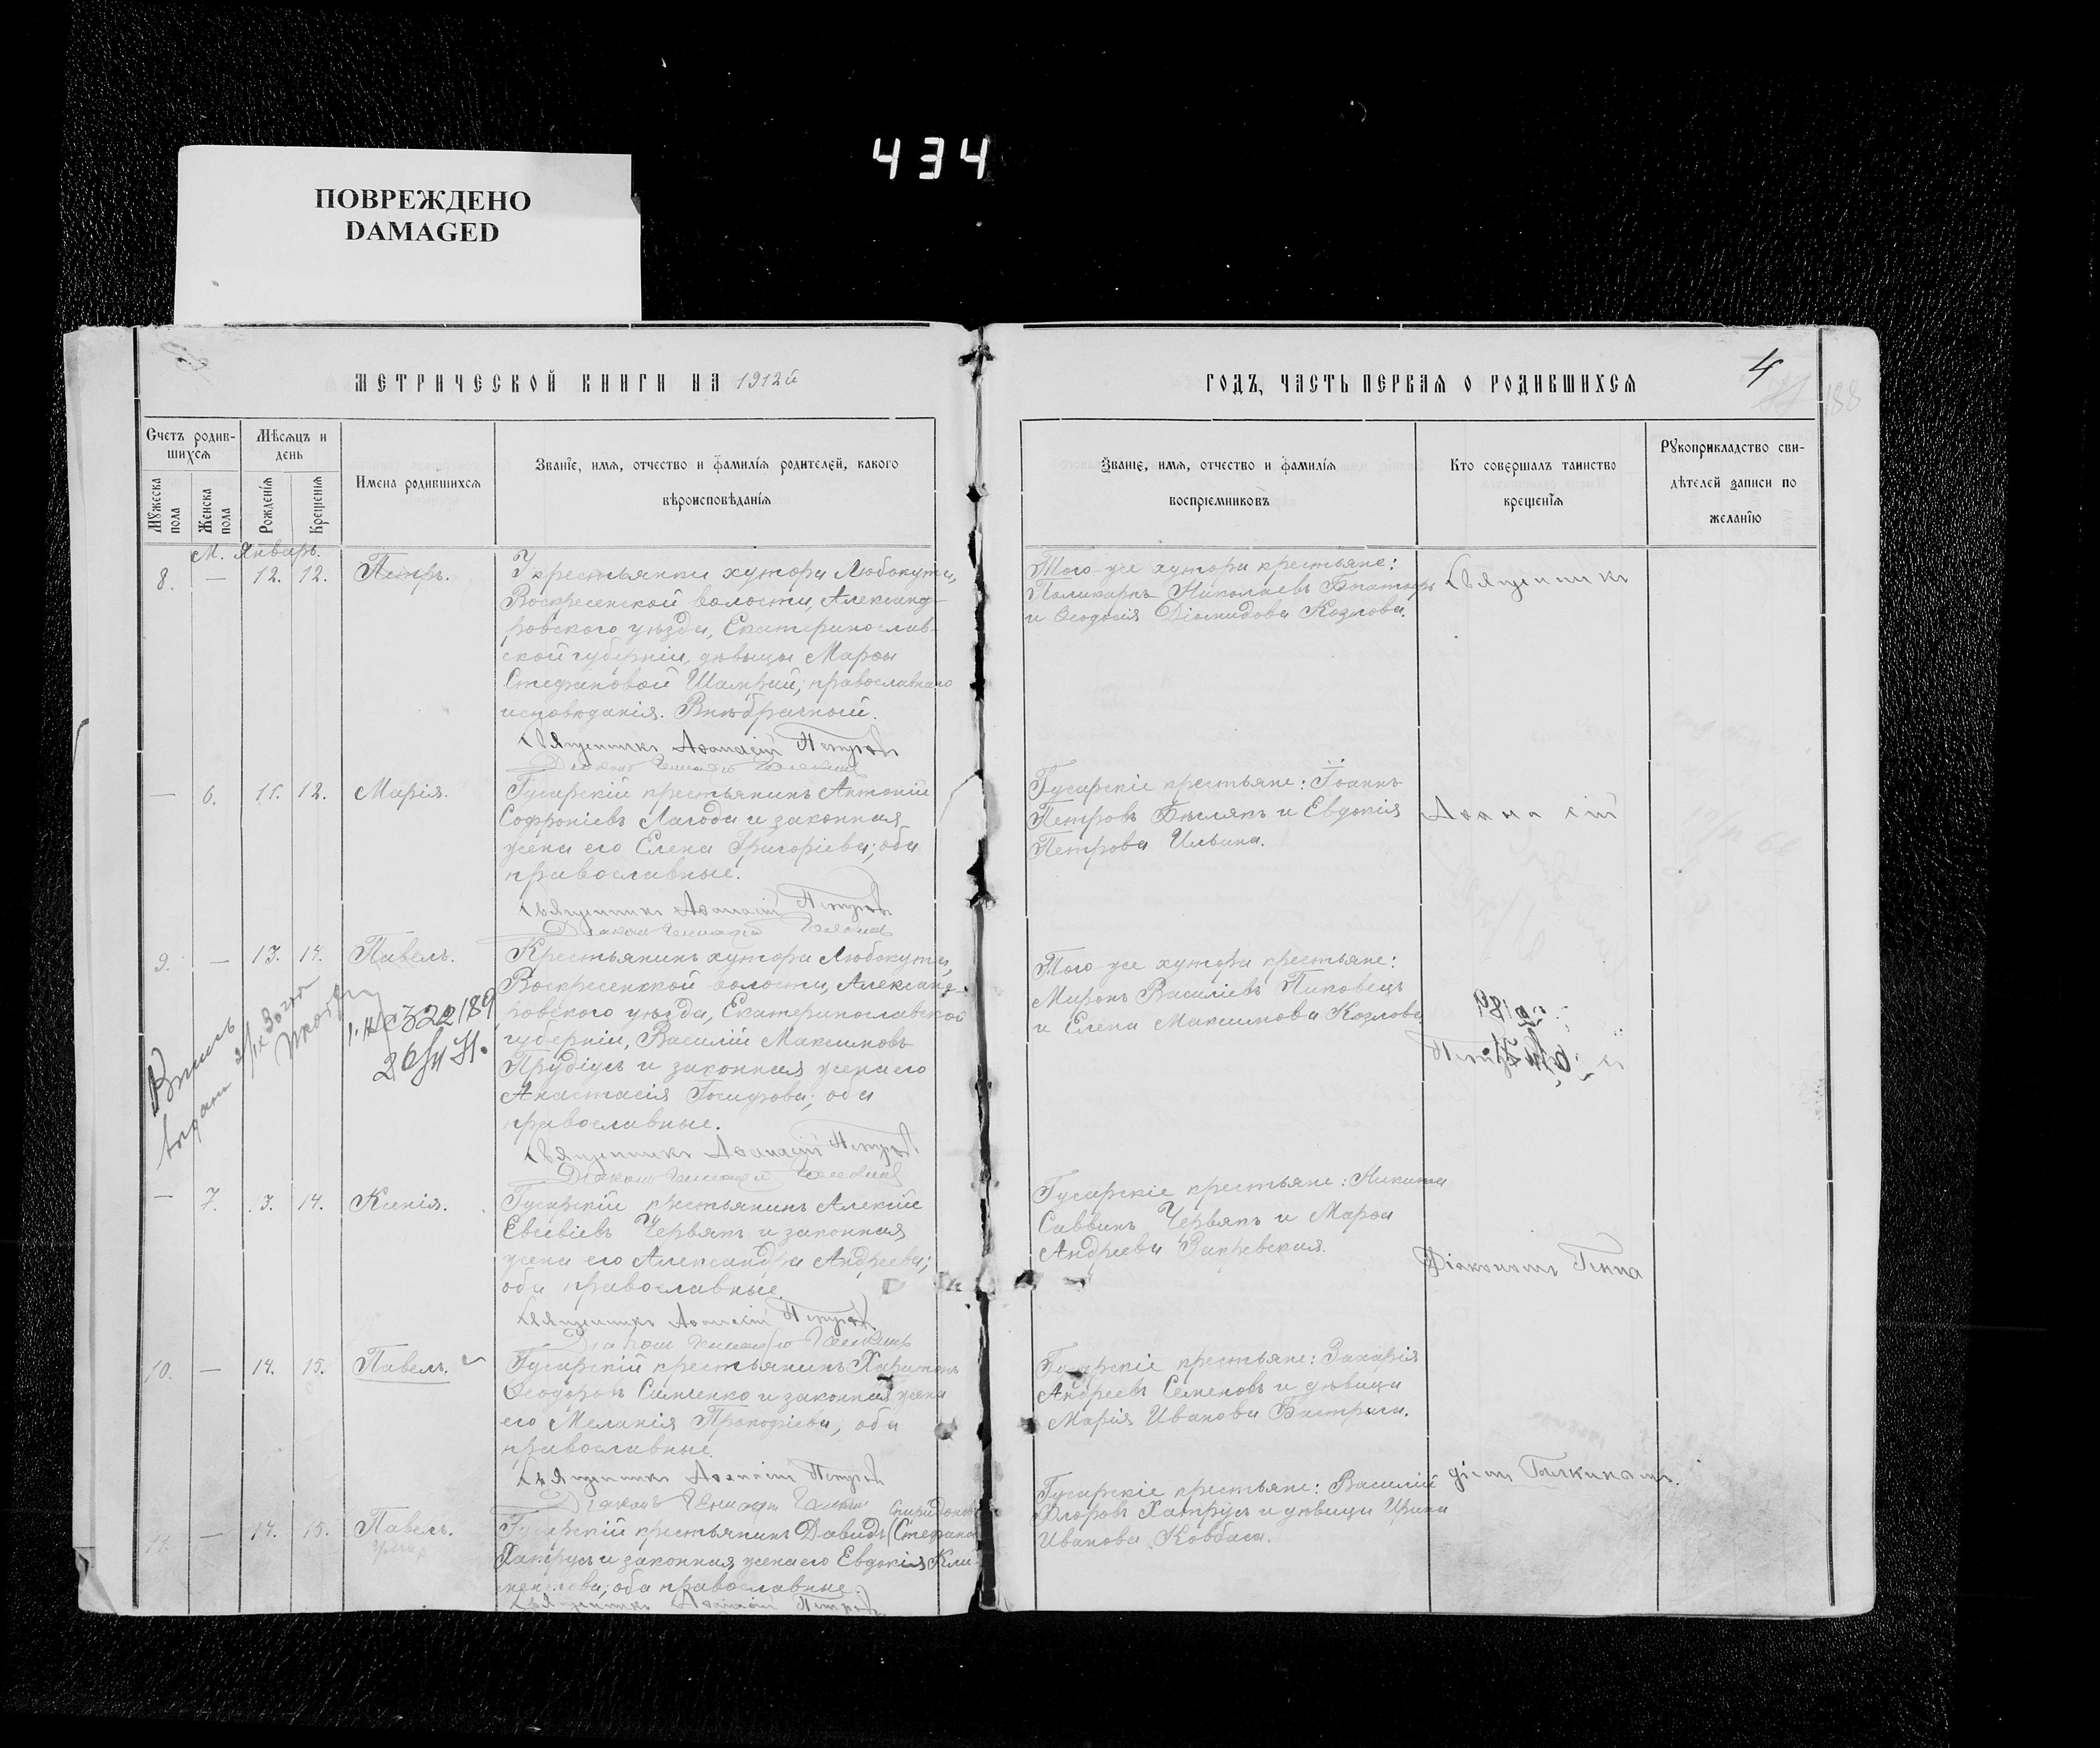 434
ПОВРЕЖДЕНО
DAMAGED
МЕТРИЧЕСКОЙ КНИГИ НА 1912й
Счетъ родив-
шихся
Мужеска
пола
Женска
пола
Мѣсяцъ и
день
Рожденїя
Крещенїя
Имена родившихся
Званїе, имя, отчество и фамилїя родителей, какого
вѣроисповѣданїя
М. Январь.
8. — 12. 12. Петръ.
У крестьянки хутора Любокута,
Воскресенской волости, Александ-
ровского уѣзда, Екатеринослав-
ской губерніи, дѣвицы Марѳы
Стефановой Шамрай, православнаго
исповѣданія. Внѣбрачный.
Священникъ Аѳанасій Петровъ
Діаконъ
— 6. 11. 12. Марія.
Гусарскій крестьянинъ Антоній
Софроніевъ Лагода и законная
жена его Елена Григоріева; оба
православные.
Священникъ Аѳанасій Петровъ
Діаконъ
9. — 13. 14. Павелъ.
Крестьянинъ хутора Любокута,
Воскресенской волости, Александ-
ровского уѣзда, Екатеринославской
губерніи, Василій Максимовъ
Прудіусъ и законная жена его
Анастасія Іосифова; оба
православные.
Священникъ Аѳанасій Петровъ
Діаконъ
— 7. 13. 14. Ксенія.
Гусарскій крестьянинъ Алексій
Евсевіевъ Червякъ и законная
жена его Александра Андреева;
оба православные.
Священникъ Аѳанасій Петровъ
Діаконъ
10. — 14. 15. Павелъ.
Гусарскій крестьянинъ Харитонъ
Ѳеодоровъ Симченко и законная жена
его Меланія Прокофіева; оба
православные.
Священникъ Аѳанасій Петровъ
Діаконъ
Спиридоновъ
11. — 14. 15. Павелъ.
умеръ
Гусарскій крестьянинъ Давидъ (Стефана
Хатрусъ и законная жена его Евдокія Кли-
оба православные.
Священникъ Аѳанасій Петровъ
выдана
26/
ГОДЪ, ЧАСТЬ ПЕРВАЯ О РОДИВШИХСЯ
4
188
Званїе, имя, отчество и фамилїя
воспрїемниковъ
Кто совершалъ таинство
крещенїя
Рукоприкладство сви-
дѣтелей записи по
желанїю
Того-же хутора крестьяне:
Поликарпъ Николаевъ Богатырь
и Ѳеодосія Діомидова Козлова.
Гусарскіе крестьяне: Іоаннъ
Петровъ Бѣлякъ и Евдокія
Петрова Ильина.
Того-же хутора крестьяне:
Миронъ Василіевъ Пиковецъ
и Елена Максимова Козлова.
Гусарскіе крестьяне: Никита
Саввинъ Червякъ и Марѳа
Андреева Закревская.
Гусарскіе крестьяне: Захарія
Андреевъ Семеновъ и дѣвица
Марія Иванова Бастрыга.
Гусарскіе крестьяне: Василій
Флоровъ Хатрусъ и дѣвица Ирина
Иванова Ковбаса.
Священникъ
Аѳанасій
Петровъ
Діакономъ Генна
діемъ Галкинымъ.